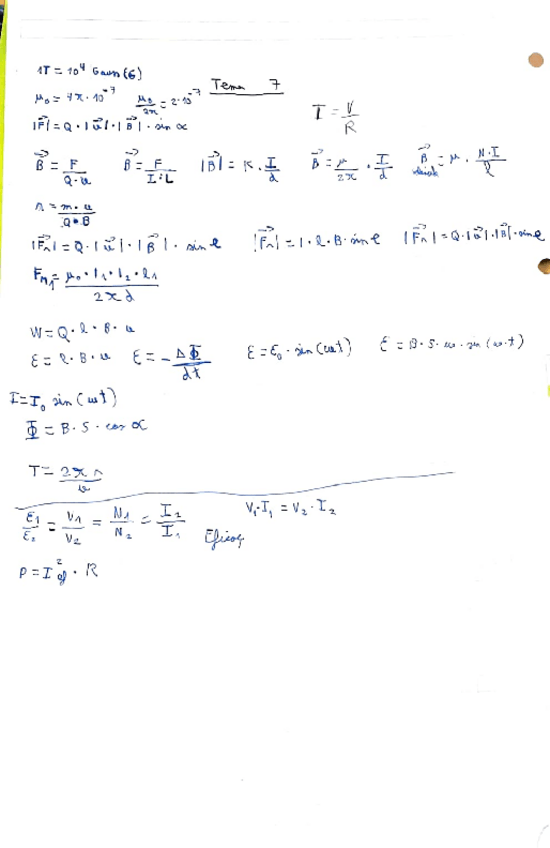 1T = 10⁴ Gauss (G)
Tema 7
μ₀ = 4π·10⁻⁷ μ₀/2π = 2·10⁻⁷
I = V/R
|F⃗| = Q·|v⃗|·|B⃗|·sin α
B⃗ = F/Q·v B⃗ = F/I·L |B⃗| = K·I/d B⃗ = μ/2π·I/d B⃗ = μ·N·I/l
r = m·v/Q·B
|F⃗m| = Q·|v⃗|·|B⃗|·sin φ |F⃗m| = I·l·B·sin φ |F⃗m| = Q·|v⃗|·|B⃗|·sin φ
F_M₁ = μ₀·I₁·I₂·l₁/2πd
W = Q·l·B·v
Ɛ = l·B·v Ɛ = -ΔΦ/dt Ɛ = Ɛ₀·sin(ωt) Ɛ = B·S·ω·sin(ω·t)
I = I₀ sin(ωt)
Φ = B·S·cos α
T = 2πr/v
Ɛ₁/Ɛ₂ = V₁/V₂ = N₁/N₂ = I₂/I₁ V₁·I₁ = V₂·I₂
Eficaz
P = I²ef·R